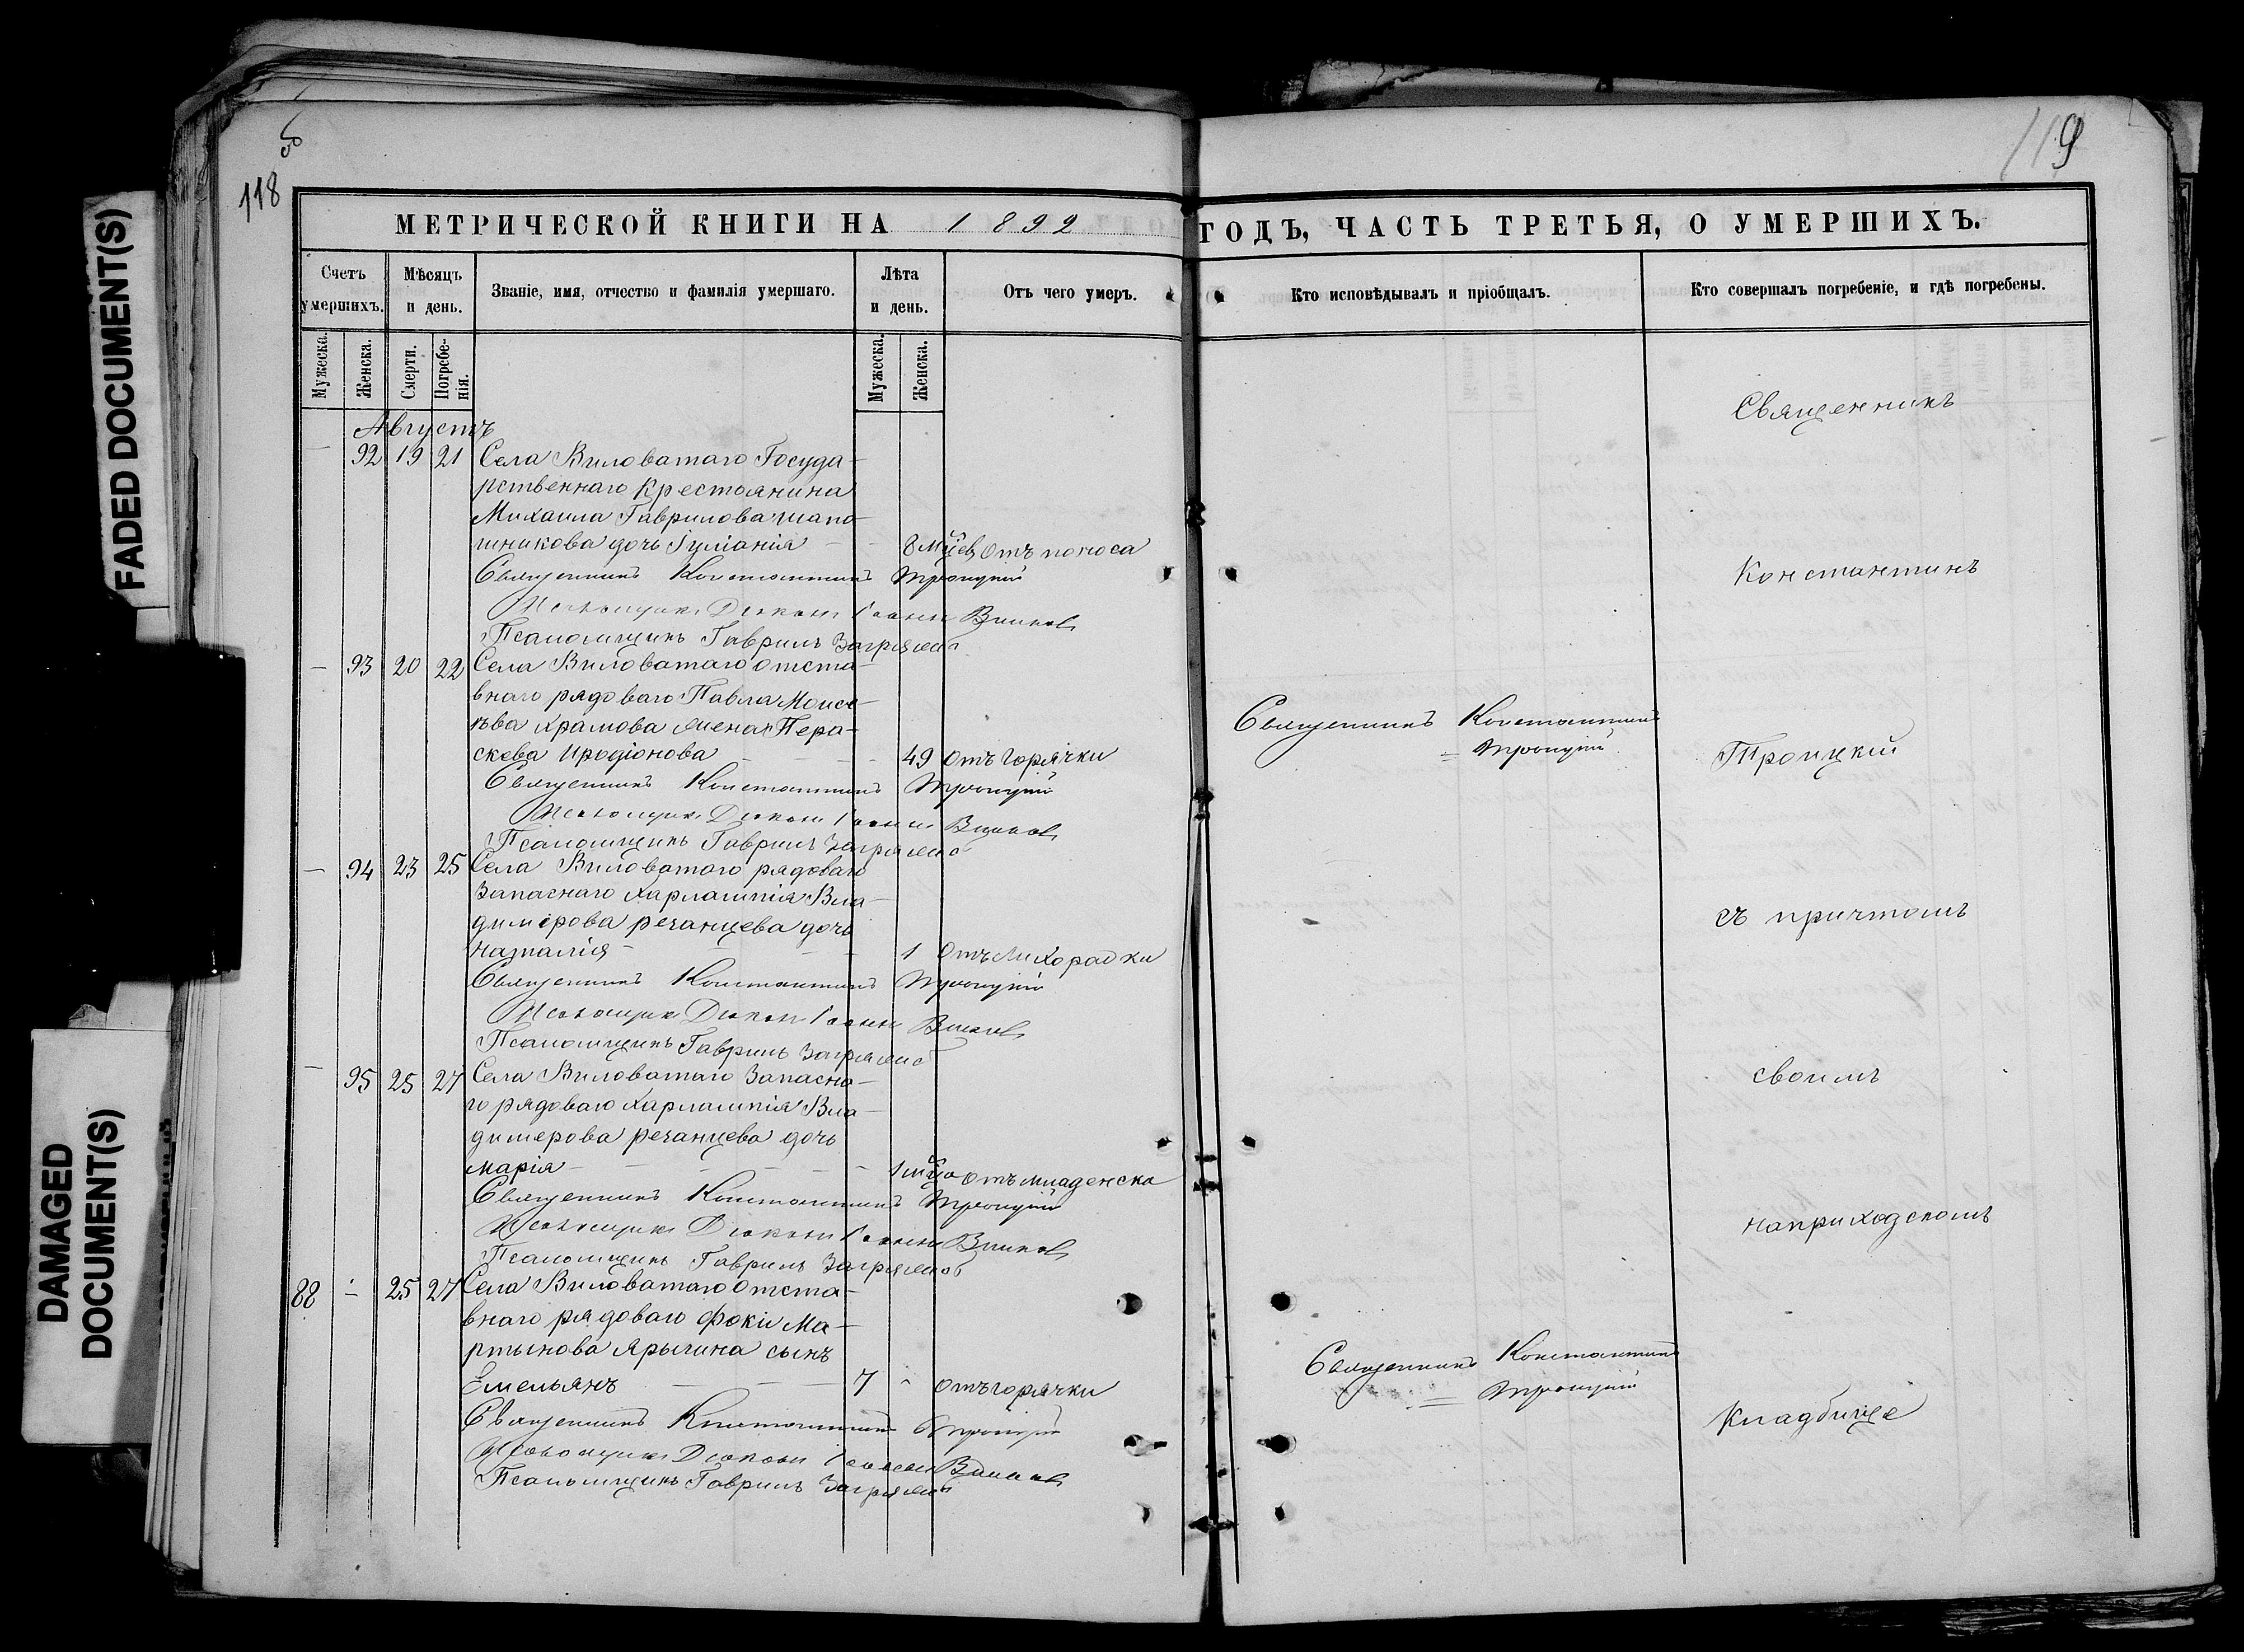 FADED DOCUMENT(S)
DAMAGED
DOCUMENT(S)
об
118
МЕТРИЧЕСКОЙ КНИГИ НА 1892
Счетъ умершихъ.
Мѣсяцъ и день.
Званіе, имя, отчество и фамилія умершаго.
Лѣта и день.
Отъ чего умеръ.
Мужеска.
Женска.
Смерти.
Погребенія.
Мужеска.
Женска.
Августъ
— 92 19 21 Села Виловатаго Госуда-
рственнаго Крестьянина
Михаила Гаврилова Шапо-
шникова дочь Іуліанія 8 мцев Отъ поноса
Священникъ Константинъ Троицкій
Псаломщикъ Діаконъ Іоаннъ
Псаломщикъ Гавриилъ
— 93 20 22 Села Виловатаго отста-
внаго рядоваго Павла Моисе-
ѣва Храмова жена Пера-
скева Иродіонова 49 отъ горячки
Священникъ Константинъ Троицкій
Псаломщикъ Діаконъ Іоаннъ
Псаломщикъ Гавриилъ
— 94 23 25 Села Виловатого рядоваго
Запаснаго Харлампія Вла-
димірова Резанцева дочь
Наталія 1 Отъ Лихорадки
Священникъ Константинъ Троицкій
Псаломщикъ Діаконъ Іоаннъ
Псаломщикъ Гавриилъ
— 95 25 27 Села Виловатаго Запасна-
го рядоваго Харлампія Вла-
димерова Резанцева дочь
Марія 1 мца отъ младенска
Священникъ Константинъ Троицкій
Псаломщикъ Діаконъ Іоаннъ
Псаломщикъ Гавриилъ
88 — 25 27 Села Виловатаго Отста-
внаго рядоваго Фоки Ма-
ртынова Ярыгина сынъ
Емельянъ 7 - отъ горячки
Священникъ Константинъ Троицкій
Псаломщикъ Діаконъ Іоаннъ
Псаломщикъ Гавриилъ
119
ГОДЪ, ЧАСТЬ ТРЕТЬЯ, О УМЕРШИХЪ.
Кто исповѣдывалъ и пріобщалъ.
Кто совершалъ погребеніе, и гдѣ погребены.
Священникъ
Константинъ
Священникъ Константинъ
= Троицкій
Троицкій
съ причтомъ
своимъ
наприходскомъ
Священникъ Константинъ
= Троицкій
Кладбище